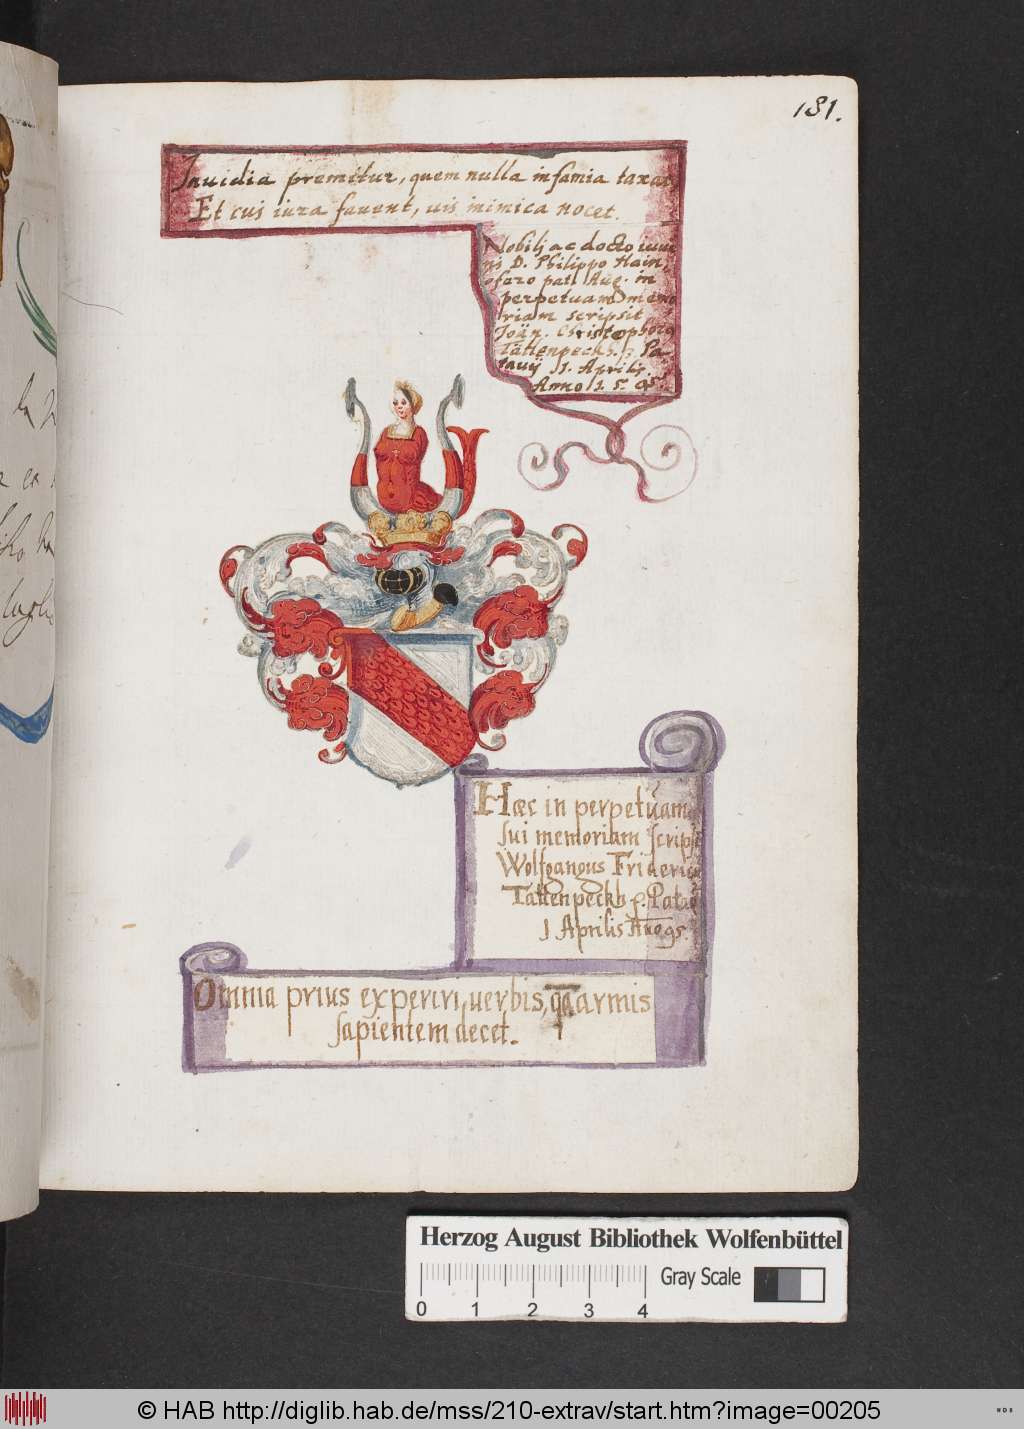 181.
Inuidia premitur, quem nulla infamia taxat,
Et cui iura fauent, uis inimica nocet.
Nobili ac docto iuue
ni D. Philippo Hain,
ofero patr. Aug. in
perpetuam memo
riam scripsit
Joan. Christophorus
Tättenpeckh. Pa
tauij 1. Aprilis.
Anno 1.5.95.
Hæc in perpetuam
sui memoriam scripsit
Wolfgangus Frideric
Tättenpeckh Patauij
1 Aprilis Ano 95.
Omnia prius experiri, uerbis, qua armis
sapientem decet.
Herzog August Bibliothek Wolfenbüttel
Gray Scale
0 1 2 3 4
© HAB http://diglib.hab.de/mss/210-extrav/start.htm?image=00205